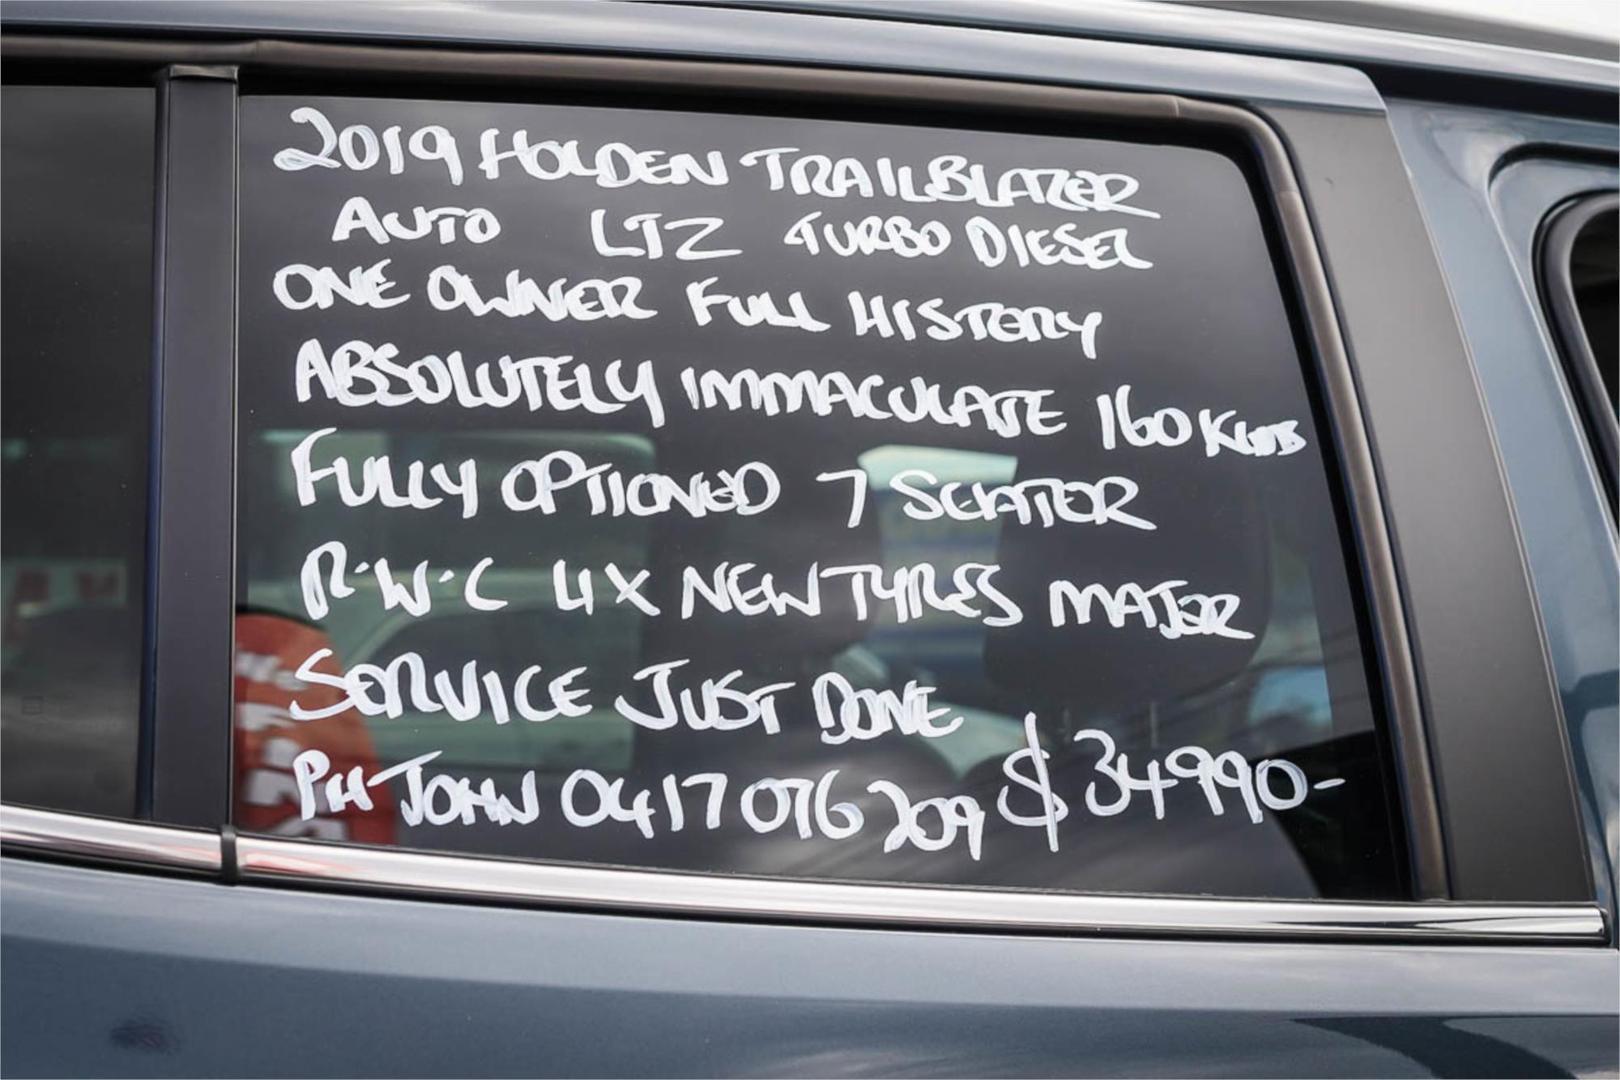 2019 HOLDEN TRAILBLAZER
AUTO LTZ TURBO DIESEL
ONE OWNER FULL HISTORY
ABSOLUTELY IMMACULATE 160 Kms
FULLY OPTIONED 7 SEATER
R.W.C 4X NEW TYRES MAJOR
SERVICE JUST DONE
PH JOHN 0417 076 209 $34990-